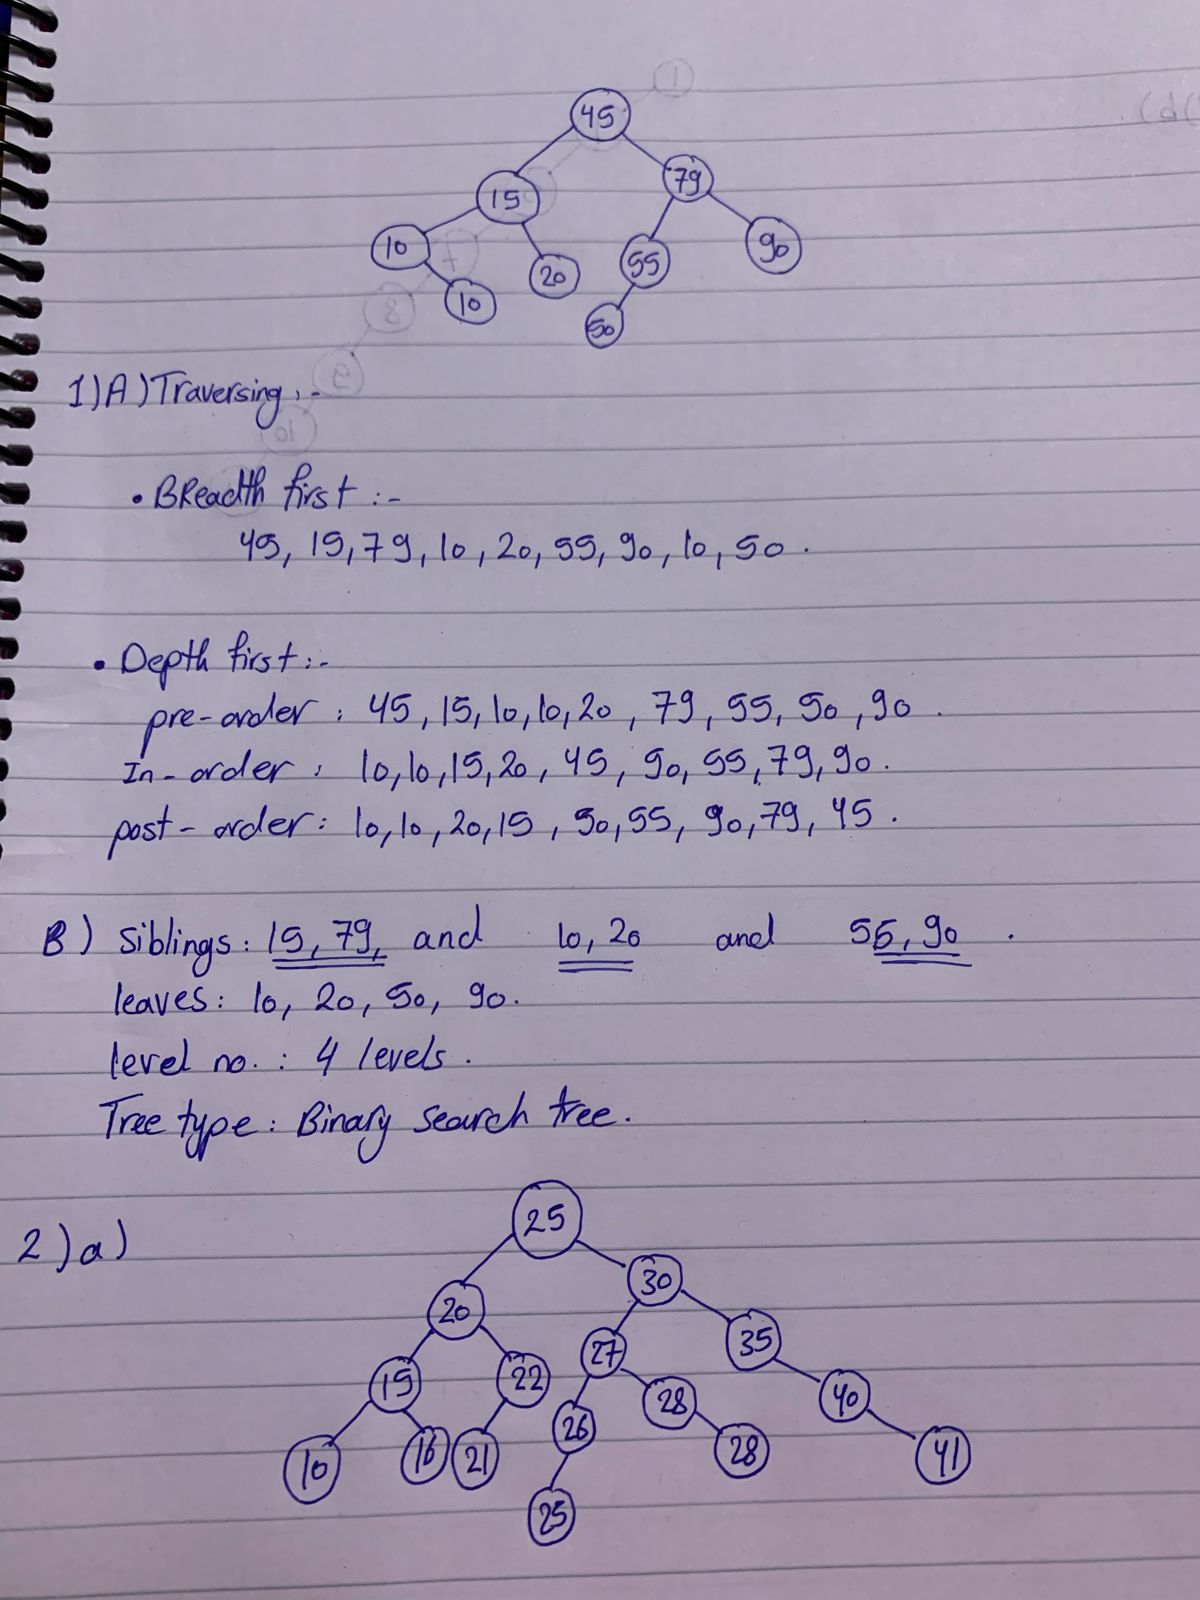 45
15 79
10 20 55 90
10 50
1)A) Traversing :-
• BReadth first :-
45, 15, 79, 10, 20, 55, 90, 10, 50.
• Depth first :-
pre-order : 45, 15, 10, 10, 20, 79, 55, 50, 90.
In-order : 10, 10, 15, 20, 45, 50, 55, 79, 90.
post-order : 10, 10, 20, 15, 50, 55, 90, 79, 45.
B) Siblings : 15, 79, and 10, 20 and 55, 90.
leaves : 10, 20, 50, 90.
level no. : 4 levels.
Tree type : Binary search tree.
2)a)
25
20 30
15 22 27 35
10 16 21 26 28 40
25 28 41